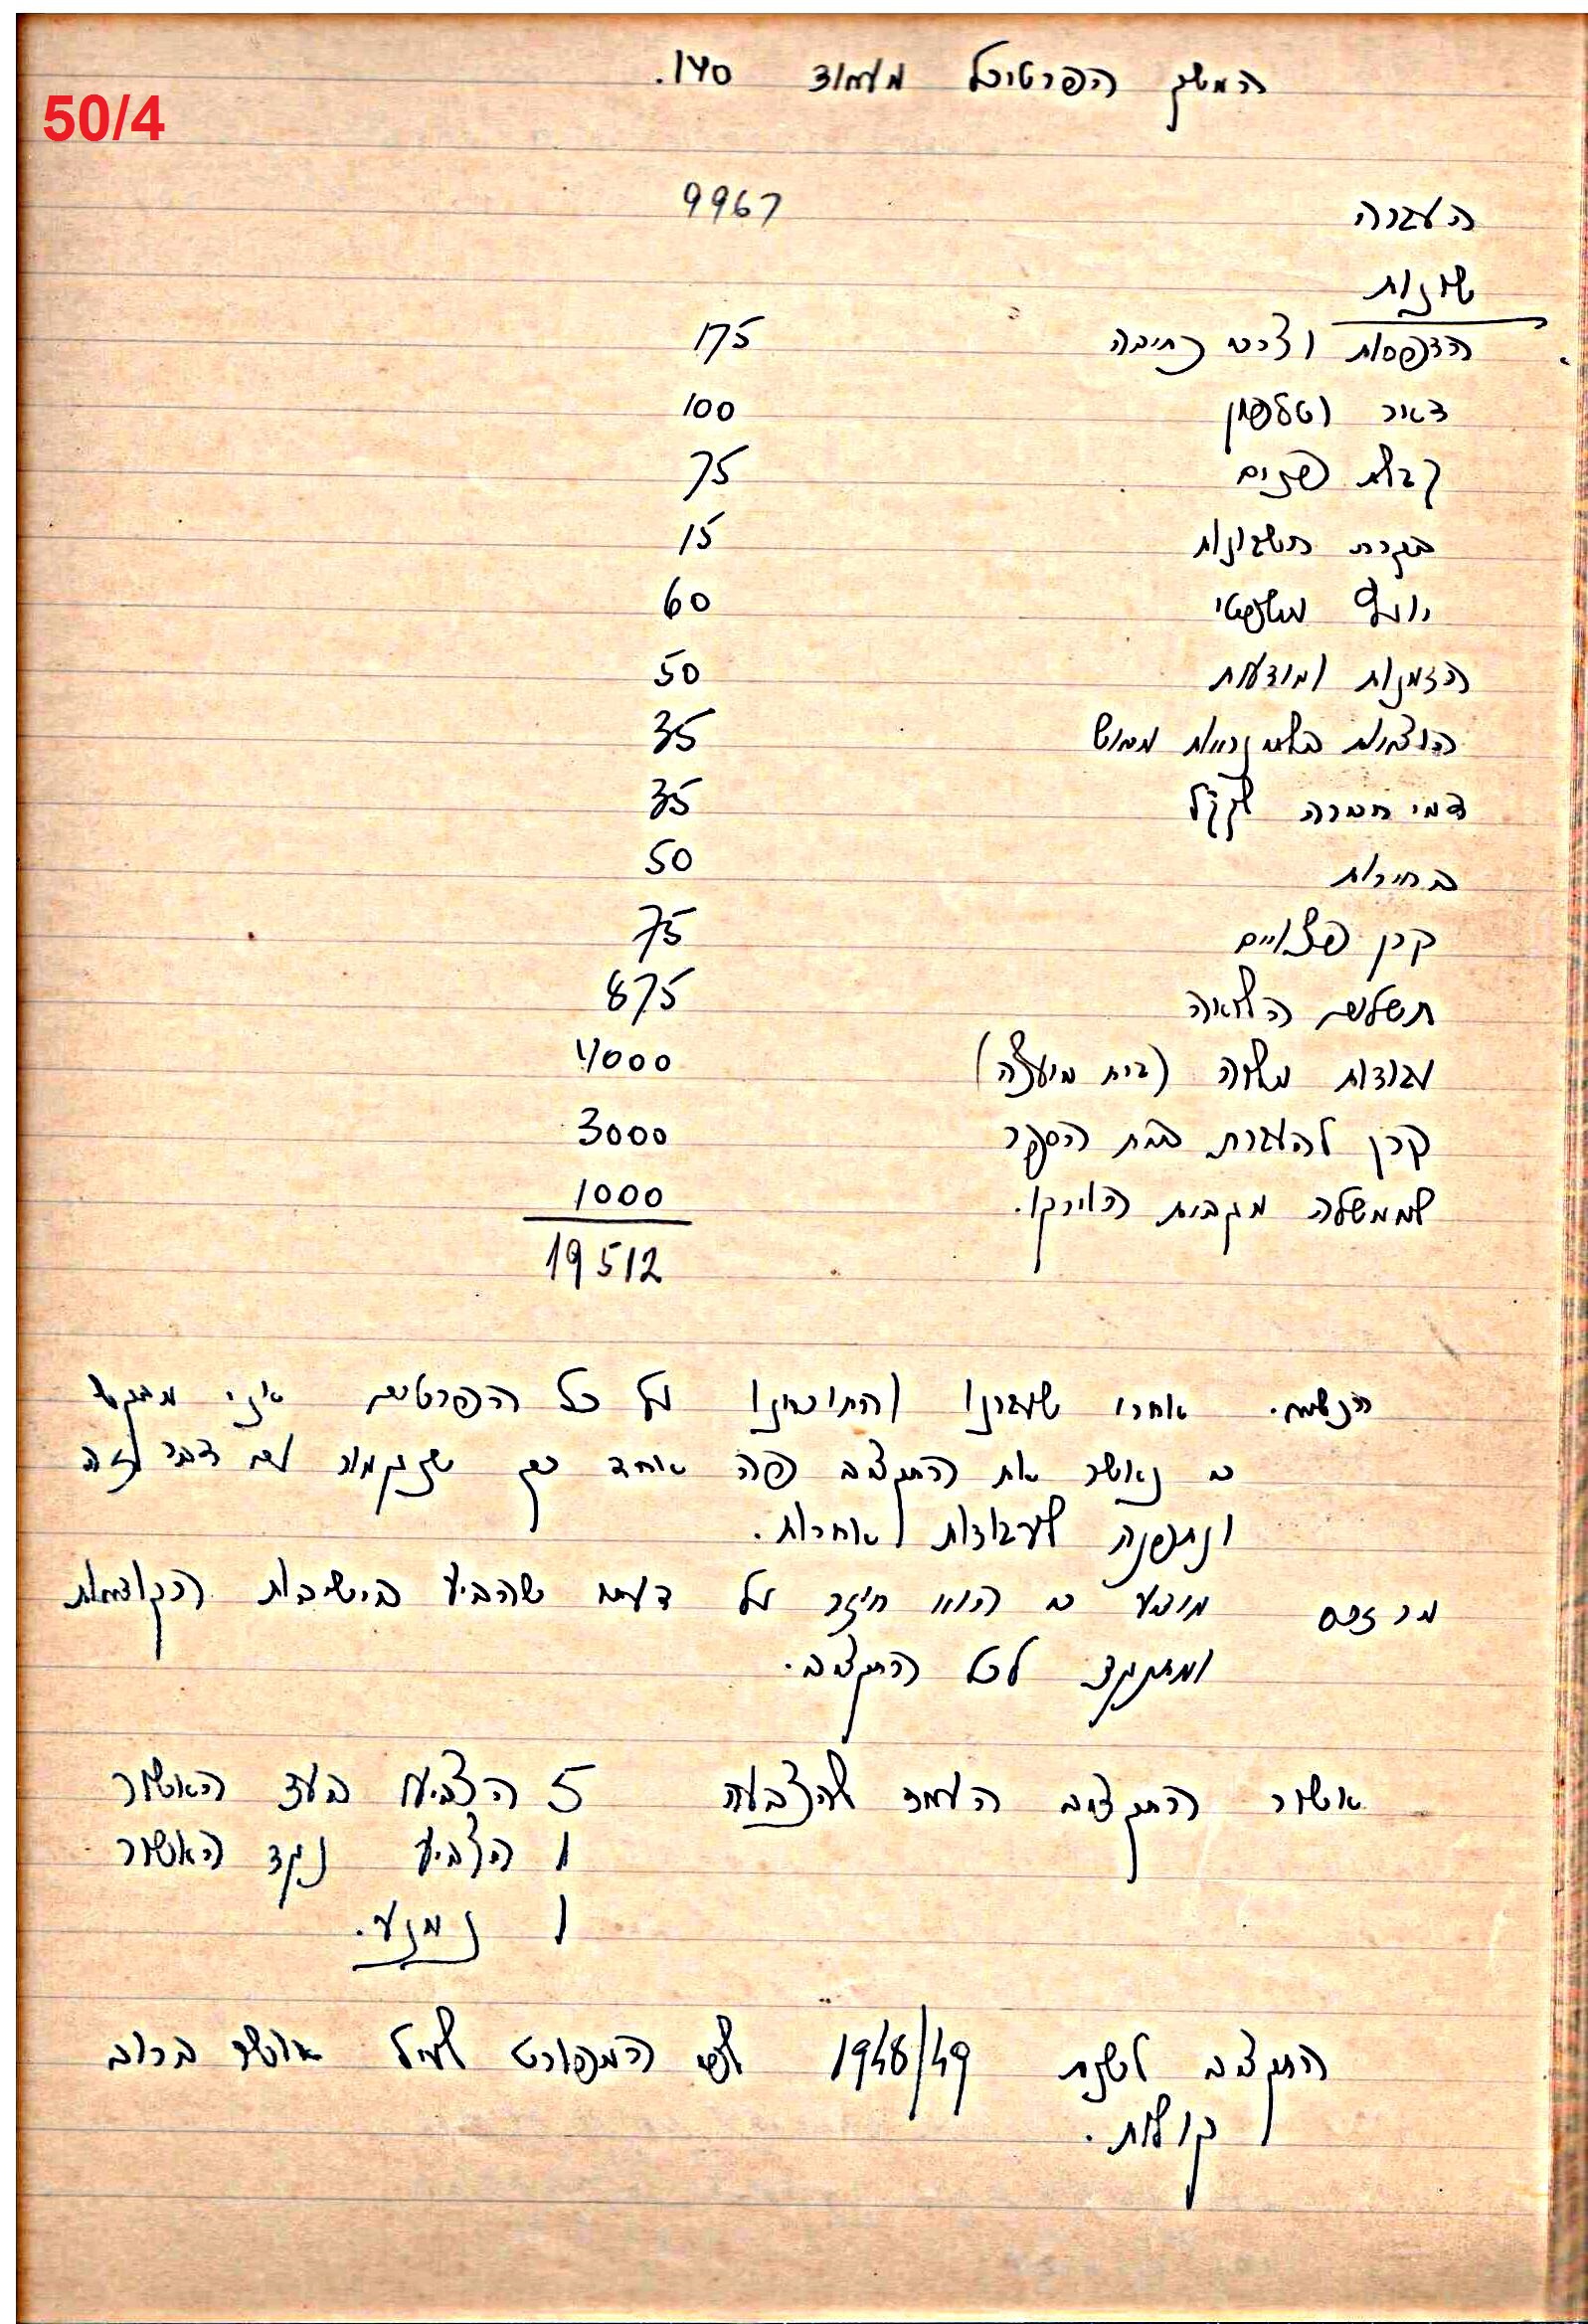 המשך הפרטיכל מעמוד 140.
50/4
העברה 9967
שונות
הדפסות וצרכי כתיבה 175
דאר וטלפון 100
קבלת פנים 75
בקרת חשבונות 15
יועץ משפטי 60
הזמנות ומודעות 50
הוצאות בלתי נראות מראש 35
דמי חברה לקק"ל 35
בחירות 50
קרן פצויים 75
תשלום הלואה 875
עבודות מלוה (בית מועצה) 4000
קרן להעברת בית הספר 3000
לממשלה מגבית הוירקו. 1000
19512
הנשיא. אחרי שעברנו והתוכחנו על כל הפרטים אני מבקש
כי נאשר את התקציב פה אחד כך שנגמור עם דבר זה
ונתפנה לעבודות אחרות.
מר זכס מודיע כי הוא חוזר על דעתו שהביע בישיבות הקודמות
ומתנגד לכל התקציב.
אשור התקציב העמד להצבעה 5 הצביעו בעד האשור
1 הצביע נגד האשור
1 נמנע.
התקציב לשנת 1948/49 לפי המפורט לעיל אושר ברוב
קולות.